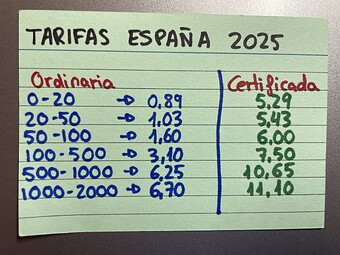 TARIFAS ESPAÑA 2025
Ordinaria Certificada
0-20 → 0,89 5,29
20-50 → 1,03 5,43
50-100 → 1,60 6,00
100-500 → 3,10 7,50
500-1000 → 6,25 10,65
1000-2000 → 6,70 11,10